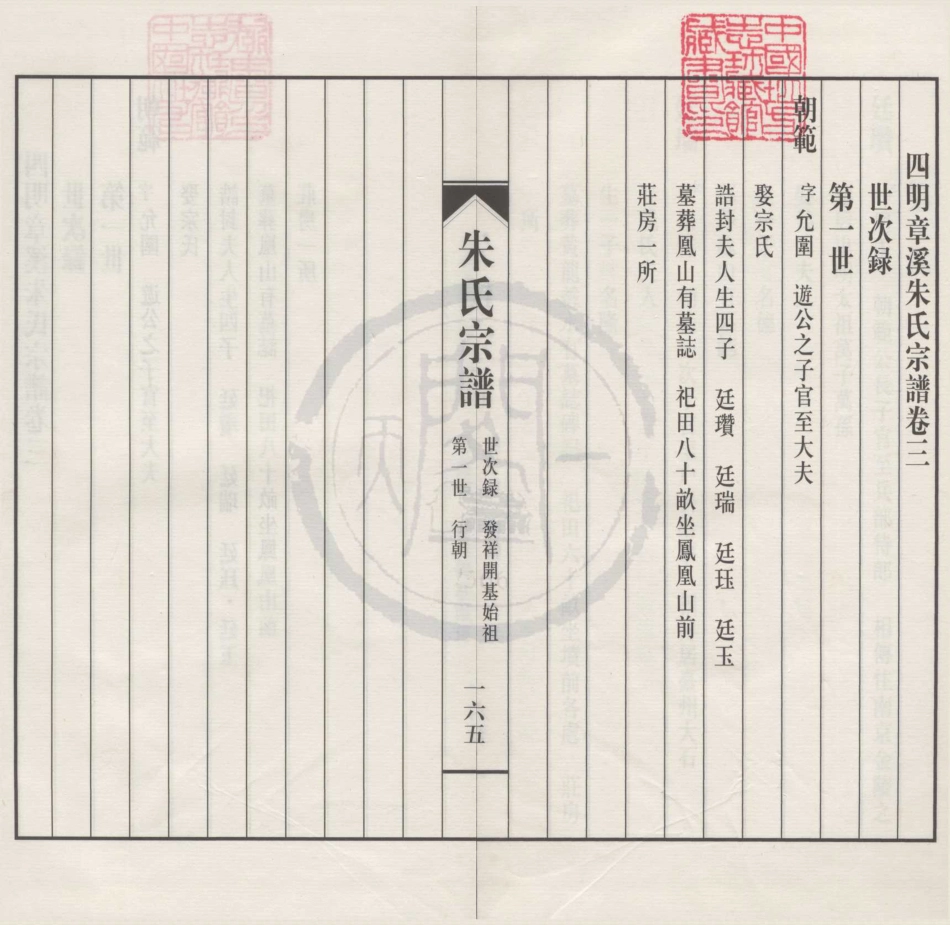 四明章溪朱氏宗譜卷三
世次録
第一世
朝範
字允圍 遊公之子官至大夫
娶宗氏
誥封夫人生四子 廷瓚 廷瑞 廷珏 廷玉
墓葬凰山有墓誌 祀田八十畝坐鳳凰山前
莊房一所
朱氏宗譜
世次録 發祥開基始祖
第一世 行朝
一六五